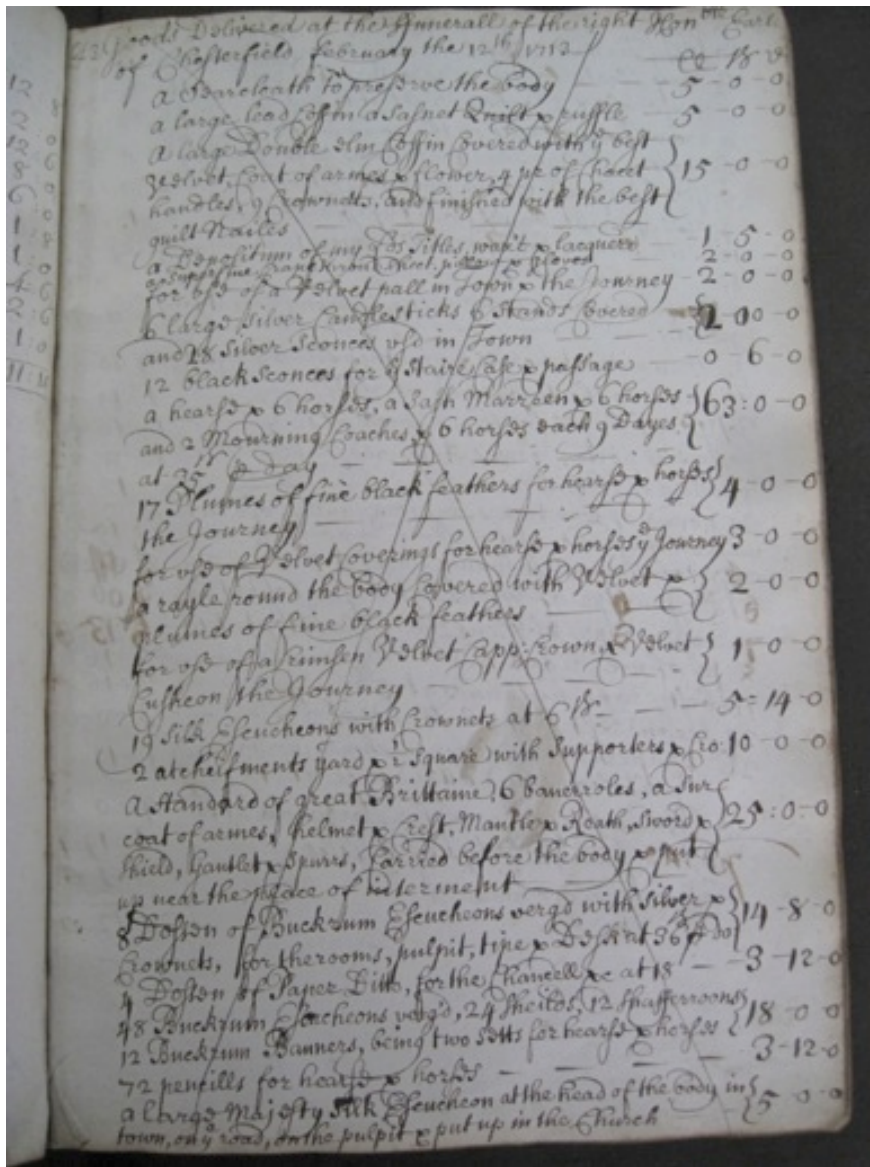 Goods Delivered at the Funerall of the right Hon ble Earl
of Chesterfield, February the 12th 1713
a Seareloath to preserve the body — 5 - 0 - 0
a large lead Coffin a Sasnet Quilt & ruffle — 5 - 0 - 0
A large Double Elm Coffin Covered with ye best
Velvet, Coat of armes & flower, 4 pr of Chact
handles, 9 Crownets, and finished with the best } 15 - 0 - 0
guilt Nailes
a Depositum of my Lds Titles, & lacquerd 1 - 5 - 0
a Superfine sheet, pillow & gloves 2 - 0 - 0
for use of a Velvet pall in Town & the Journey — 2 - 0 - 0
6 large silver Candlesticks 6 Stands Covered
and 28 silver Sconces usd in Town 10 - 0
12 black Sconces for ye Staire Case & passage — 0 - 6 - 0
a hearse & 6 horses, a Sash Marreen & 6 horses } 63 : 0 - 0
and 2 Mourning Coaches & 6 horses each 9 Dayes
at 35s P day
17 Plumes of fine black feathers for hearse & horses } 4 - 0 - 0
the Journey
for use of Velvet Coverings for hearse & horses ye Journey 3 - 0 - 0
a rayle round the body Covered with Velvet & } 2 - 0 - 0
plumes of fine black feathers
for use of a Crimsen Velvet Capp: Crown & Velvet } 1 - 0 - 0
Cusheon the Journey
19 Silk Escucheons with Crownets at 6s — 5 = 14 - 0
2 atcheifments yard & ½ square with Supporters & Cro: 10 - 0 - 0
A Standard of great Brittaine, 6 banerroles, a Sur
coat of armes, helmet & Crest, Mantle & Roath, Sword & } 25 : 0 - 0
Shield, Gantlet & Spurrs, Carried before the body & put
up near the place of interment
8 Dossen of Buckrum Escucheons verg'd with silver & } 14 - 8 - 0
Crownets, for the rooms, pulpit, tipe & Desk at 36s P do
4 Dossen of Paper Ditto, for the Chancell &c at 18 — 3 - 12 - 0
48 Buckrum Escucheons verg'd, 24 Sheilds, 12 Shafferroons
12 Buckrum Banners, being two setts for hearse & horses } 18 - 0 - 0
72 pencills for hearse & horses — 3 - 12 - 0
a large Majesty Silk Escucheon at the head of the body in } 5 - 0 - 0
town, on ye road, on the pulpit & put up in the Church